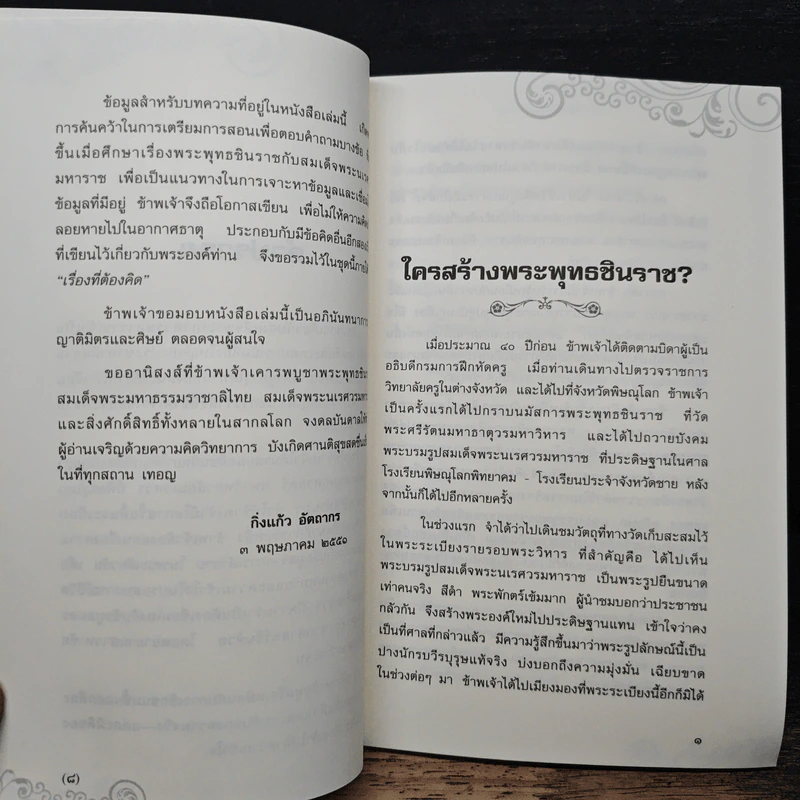 ข้อมูลสำหรับบทความที่อยู่ในหนังสือเล่มนี้
การค้นคว้าในการเตรียมการสอนเพื่อตอบคำถามบางข้อ
ขึ้นเมื่อศึกษาเรื่องพระพุทธชินราชกับสมเด็จพระนเร
มหาราช เพื่อเป็นแนวทางในการเจาะหาข้อมูลและเชื่อม
ข้อมูลที่มีอยู่ ข้าพเจ้าจึงถือโอกาสเขียน เพื่อไม่ให้ความคิด
ลอยหายไปในอากาศธาตุ ประกอบกับมีข้อคิดอื่นอีกสอง
ที่เขียนไว้เกี่ยวกับพระองค์ท่าน จึงขอรวมไว้ในชุดนี้ภาย
“เรื่องที่ต้องคิด”
ข้าพเจ้าขอมอบหนังสือเล่มนี้เป็นอภินันทนาการ
ญาติมิตรและศิษย์ ตลอดจนผู้สนใจ
ขออานิสงส์ที่ข้าพเจ้าเคารพบูชาพระพุทธชิน
สมเด็จพระมหาธรรมราชาลิไทย สมเด็จพระนเรศวรมหา
และสิ่งศักดิ์สิทธิ์ทั้งหลายในสากลโลก จงดลบันดาลให้
ผู้อ่านเจริญด้วยความคิดวิทยาการ บังเกิดศานติสุขสดชื่น
ในที่ทุกสถาน เทอญ
กิ่งแก้ว อัตถากร
๓ พฤษภาคม ๒๕๕๐
(๘)
ใครสร้างพระพุทธชินราช?
เมื่อประมาณ ๔๐ ปีก่อน ข้าพเจ้าได้ติดตามบิดาผู้เป็น
อธิบดีกรมการฝึกหัดครู เมื่อท่านเดินทางไปตรวจราชการ
วิทยาลัยครูในต่างจังหวัด และได้ไปที่จังหวัดพิษณุโลก ข้าพเจ้า
เป็นครั้งแรกได้ไปกราบนมัสการพระพุทธชินราช ที่วัด
พระศรีรัตนมหาธาตุวรมหาวิหาร และได้ไปถวายบังคม
พระบรมรูปสมเด็จพระนเรศวรมหาราช ที่ประดิษฐานในศาล
โรงเรียนพิษณุโลกพิทยาคม - โรงเรียนประจำจังหวัดชาย หลัง
จากนั้นก็ได้ไปอีกหลายครั้ง
ในช่วงแรก จำได้ว่าไปเดินชมวัตถุที่ทางวัดเก็บสะสมไว้
ในพระระเบียงรายรอบพระวิหาร ที่สำคัญคือ ได้ไปเห็น
พระบรมรูปสมเด็จพระนเรศวรมหาราช เป็นพระรูปยืนขนาด
เท่าคนจริง สีดำ พระพักตร์เข้มมาก ผู้นำชมบอกว่าประชาชน
กลัวกัน จึงสร้างพระองค์ใหม่ไปประดิษฐานแทน เข้าใจว่าคง
เป็นที่ศาลที่กล่าวแล้ว มีความรู้สึกขึ้นมาว่าพระรูปลักษณ์นี้เป็น
ปางนักรบวีรบุรุษแท้จริง บ่งบอกถึงความมุ่งมั่น เฉียบขาด
ในช่วงต่อๆ มา ข้าพเจ้าได้ไปเมียงมองที่พระระเบียงนี้อีกก็มิได้
๑